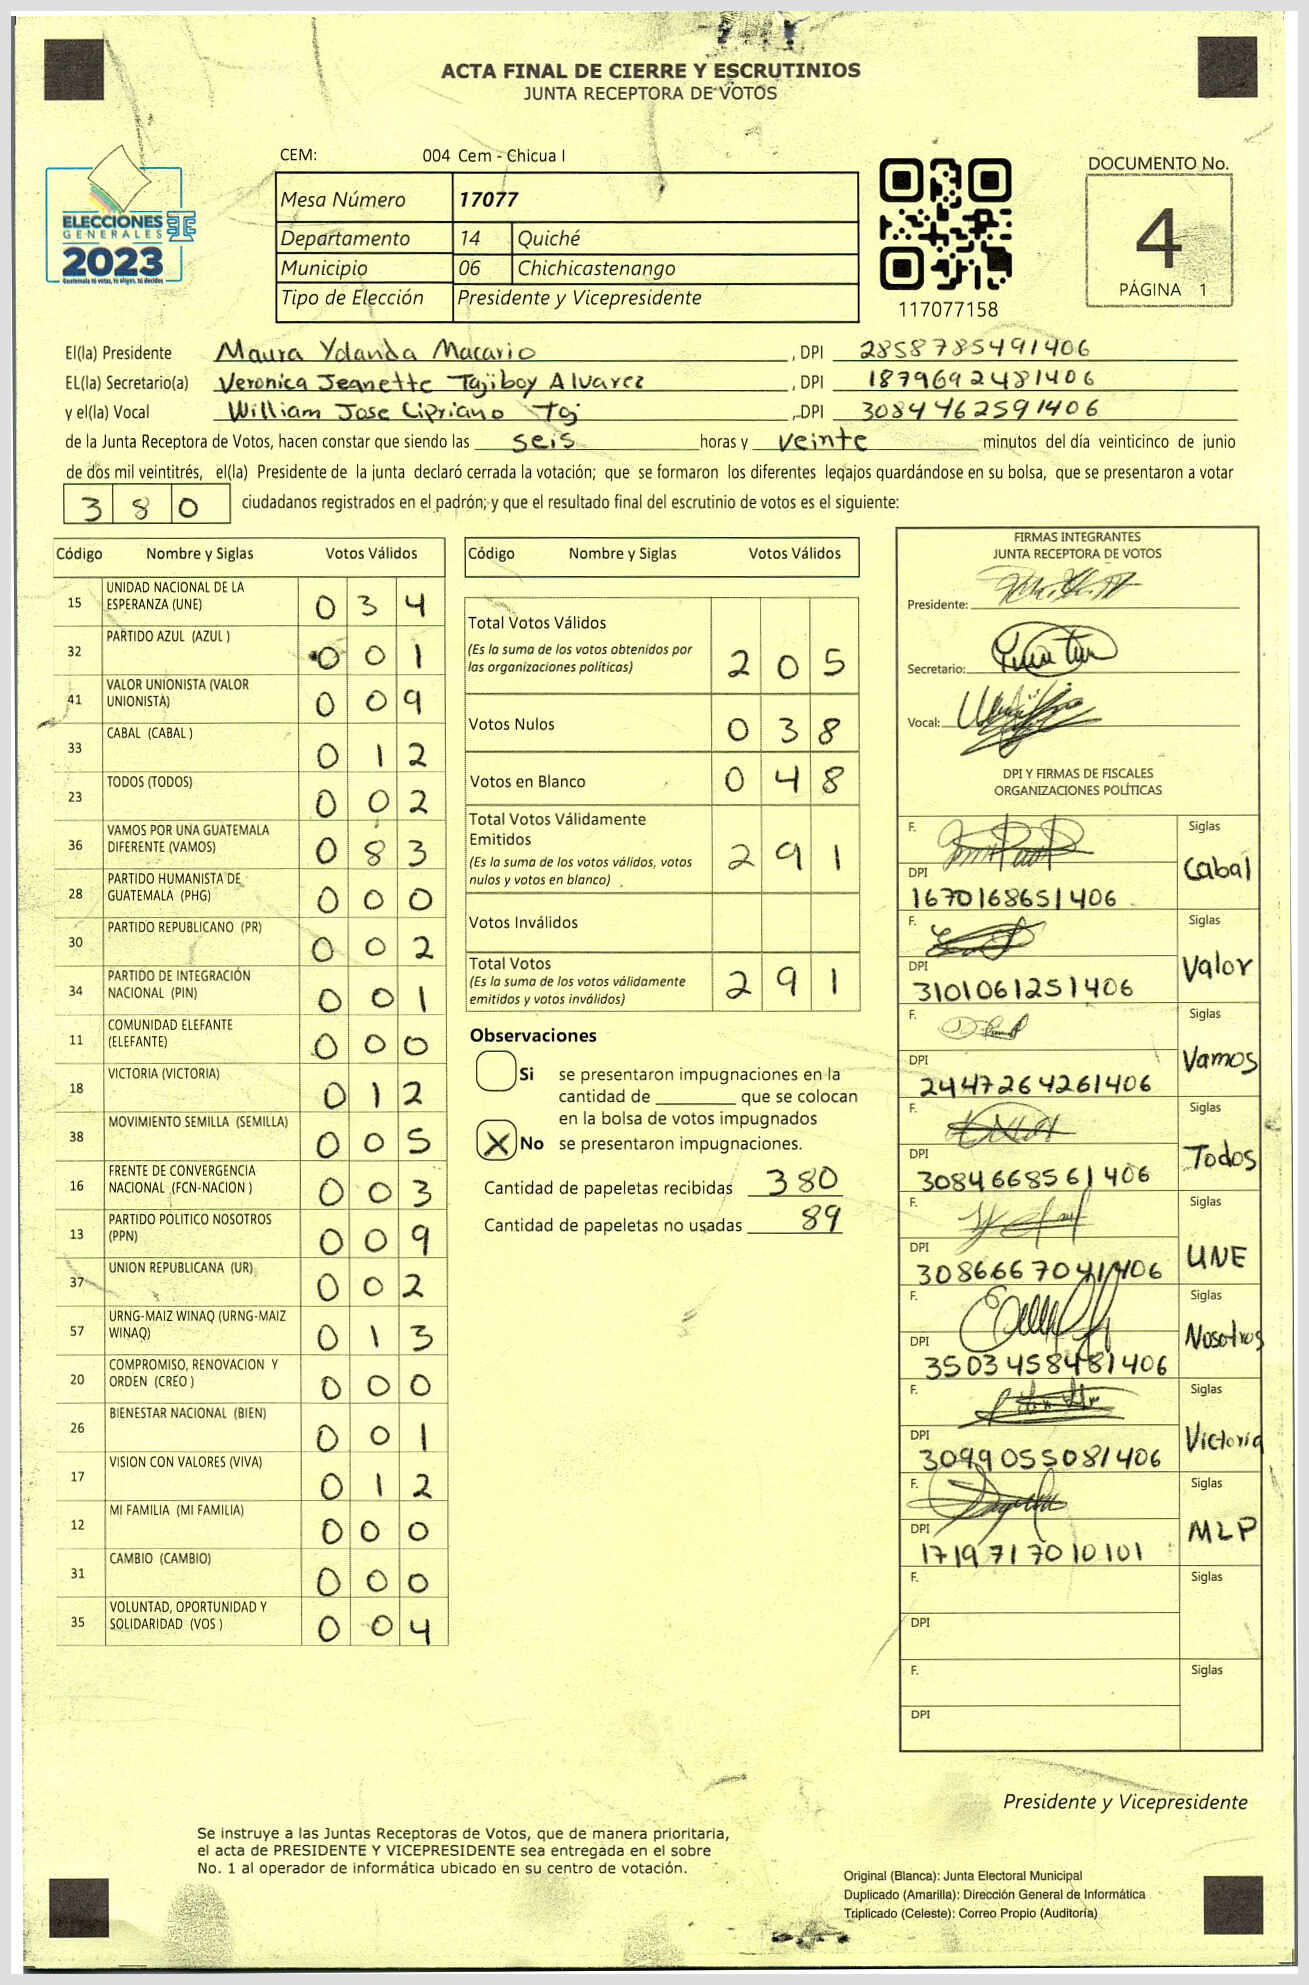 ACTA FINAL DE CIERRE Y ESCRUTINIOS
JUNTA RECEPTORA DE VOTOS
CEM: 004 Cem - Chicua I
ELECCIONES
GENERALES
2023
Guatemala tú votas, tú eliges, tú decides
Mesa Número 17077
Departamento 14 Quiché
Municipio 06 Chichicastenango
Tipo de Elección Presidente y Vicepresidente
117077158
DOCUMENTO No.
4
PÁGINA 1
El(la) Presidente Maura Yolanda Macario , DPI 2858785491406
EL(la) Secretario(a) Veronica Jeanette Tajiboy Alvarez , DPI 1879692481406
y el(la) Vocal William Jose Cipriano Toj , DPI 3084462591406
de la Junta Receptora de Votos, hacen constar que siendo las seis horas y veinte minutos del día veinticinco de junio
de dos mil veintitrés, el(la) Presidente de la junta declaró cerrada la votación; que se formaron los diferentes legajos quardándose en su bolsa, que se presentaron a votar
380 ciudadanos registrados en el padrón; y que el resultado final del escrutinio de votos es el siguiente:
Código Nombre y Siglas Votos Válidos
15 UNIDAD NACIONAL DE LA ESPERANZA (UNE) 0 3 4
32 PARTIDO AZUL (AZUL ) 0 0 1
41 VALOR UNIONISTA (VALOR UNIONISTA) 0 0 9
33 CABAL (CABAL ) 0 1 2
23 TODOS (TODOS) 0 0 2
36 VAMOS POR UNA GUATEMALA DIFERENTE (VAMOS) 0 8 3
28 PARTIDO HUMANISTA DE GUATEMALA (PHG) 0 0 0
30 PARTIDO REPUBLICANO (PR) 0 0 2
34 PARTIDO DE INTEGRACIÓN NACIONAL (PIN) 0 0 1
11 COMUNIDAD ELEFANTE (ELEFANTE) 0 0 0
18 VICTORIA (VICTORIA) 0 1 2
38 MOVIMIENTO SEMILLA (SEMILLA) 0 0 5
16 FRENTE DE CONVERGENCIA NACIONAL (FCN-NACION ) 0 0 3
13 PARTIDO POLITICO NOSOTROS (PPN) 0 0 9
37 UNION REPUBLICANA (UR) 0 0 2
57 URNG-MAIZ WINAQ (URNG-MAIZ WINAQ) 0 1 3
20 COMPROMISO, RENOVACION Y ORDEN (CREO ) 0 0 0
26 BIENESTAR NACIONAL (BIEN) 0 0 1
17 VISION CON VALORES (VIVA) 0 1 2
12 MI FAMILIA (MI FAMILIA) 0 0 0
31 CAMBIO (CAMBIO) 0 0 0
35 VOLUNTAD, OPORTUNIDAD Y SOLIDARIDAD (VOS ) 0 0 4
Código Nombre y Siglas Votos Válidos
Total Votos Válidos
(Es la suma de los votos obtenidos por las organizaciones políticas) 2 0 5
Votos Nulos 0 3 8
Votos en Blanco 0 4 8
Total Votos Válidamente Emitidos
(Es la suma de los votos válidos, votos nulos y votos en blanco) 2 9 1
Votos Inválidos
Total Votos
(Es la suma de los votos válidamente emitidos y votos inválidos) 2 9 1
Observaciones
Si se presentaron impugnaciones en la
cantidad de ________ que se colocan
en la bolsa de votos impugnados
X No se presentaron impugnaciones.
Cantidad de papeletas recibidas 380
Cantidad de papeletas no usadas 89
FIRMAS INTEGRANTES
JUNTA RECEPTORA DE VOTOS
Presidente:
Secretario:
Vocal:
DPI Y FIRMAS DE FISCALES
ORGANIZACIONES POLÍTICAS
F. Siglas Cabal
DPI 1670168651406
F. Siglas Valor
DPI 3101061251406
F. Siglas Vamos
DPI 2447264261406
F. Siglas Todos
DPI 3084668561406
F. Siglas UNE
DPI 3086667041406
F. Siglas Nosotros
DPI 3503458481406
F. Siglas Victoria
DPI 3099055081406
F. Siglas MLP
DPI 1719717010101
F. Siglas
DPI
F. Siglas
DPI
Presidente y Vicepresidente
Se instruye a las Juntas Receptoras de Votos, que de manera prioritaria,
el acta de PRESIDENTE Y VICEPRESIDENTE sea entregada en el sobre
No. 1 al operador de informática ubicado en su centro de votación.
Original (Blanca): Junta Electoral Municipal
Duplicado (Amarilla): Dirección General de Informática
Triplicado (Celeste): Correo Propio (Auditoría)